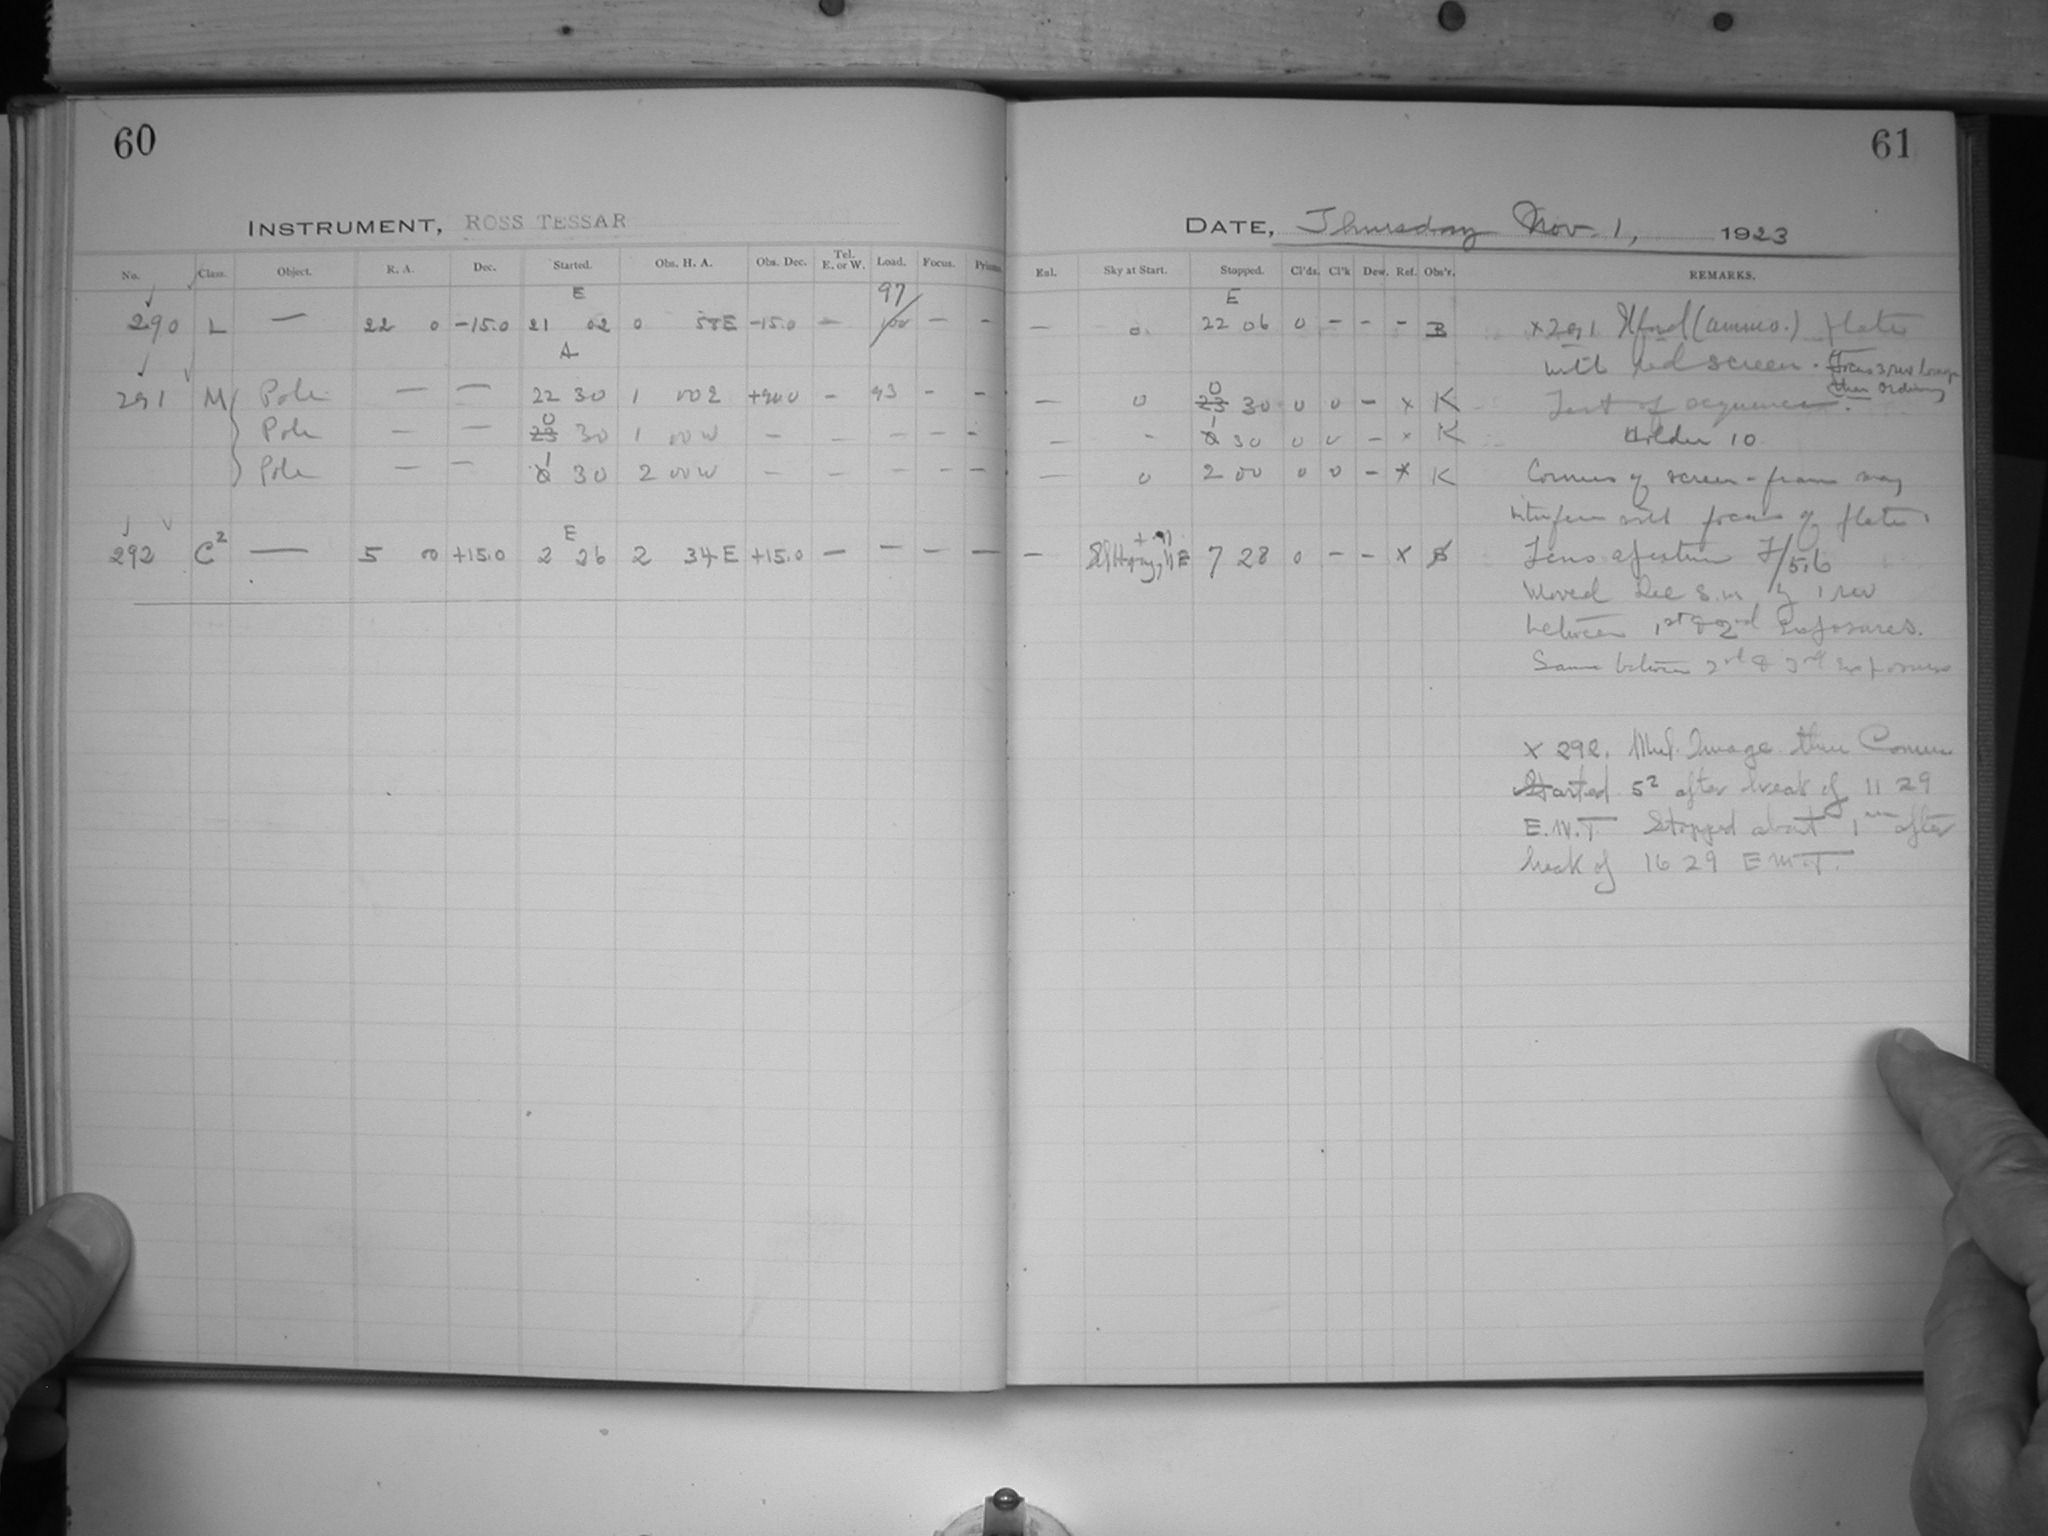 60
61
INSTRUMENT, ROSS TESSAR
DATE, Thursday Nov. 1, 1923
No. Class. Object. R. A. Dec. Started. Obs. H. A. Obs. Dec. Tel. E. or W. Load. Focus. Prisms.
Enl. Sky at Start. Stopped. Cl'ds. Cl'k Dew. Ref. Obs'r. REMARKS.
E 97
E
290 L — 22 0 -15.0 21 02 0 58E -15.0 — 100 — —
— 0 22 06 0 - - - B x291 Ilford (ammo.) plate
A
with red screen. Focus 3 rev longer than ordinary
291 M Pole — — 22 30 1 00 E +90 0 - 93 - -
— 0 0 23 30 0 0 - x K Test of sequence.
Pole — — 0 23 30 1 00 W — — — — -
— - 1 0 30 0 0 - x K Holder 10
Pole — — 1 0 30 2 00 W — — — — -
— 0 2 00 0 0 - x K Corners of screen-frame may
interfere with focus of plate.
E
292 C2 — 5 00 +15.0 2 26 2 34 E +15.0 — — — —
— 7 28 0 - - x B Lens aperture F/5.6
Moved Dec S.M by 1 rev
between 1st & 2nd Exposures.
Same between 2nd & 3rd Exposures
x 292. Mul. Image thru Corner
Started 5 after break of 11 29
E.M.T. Stopped about 1m after
break of 16 29 E.M.T.